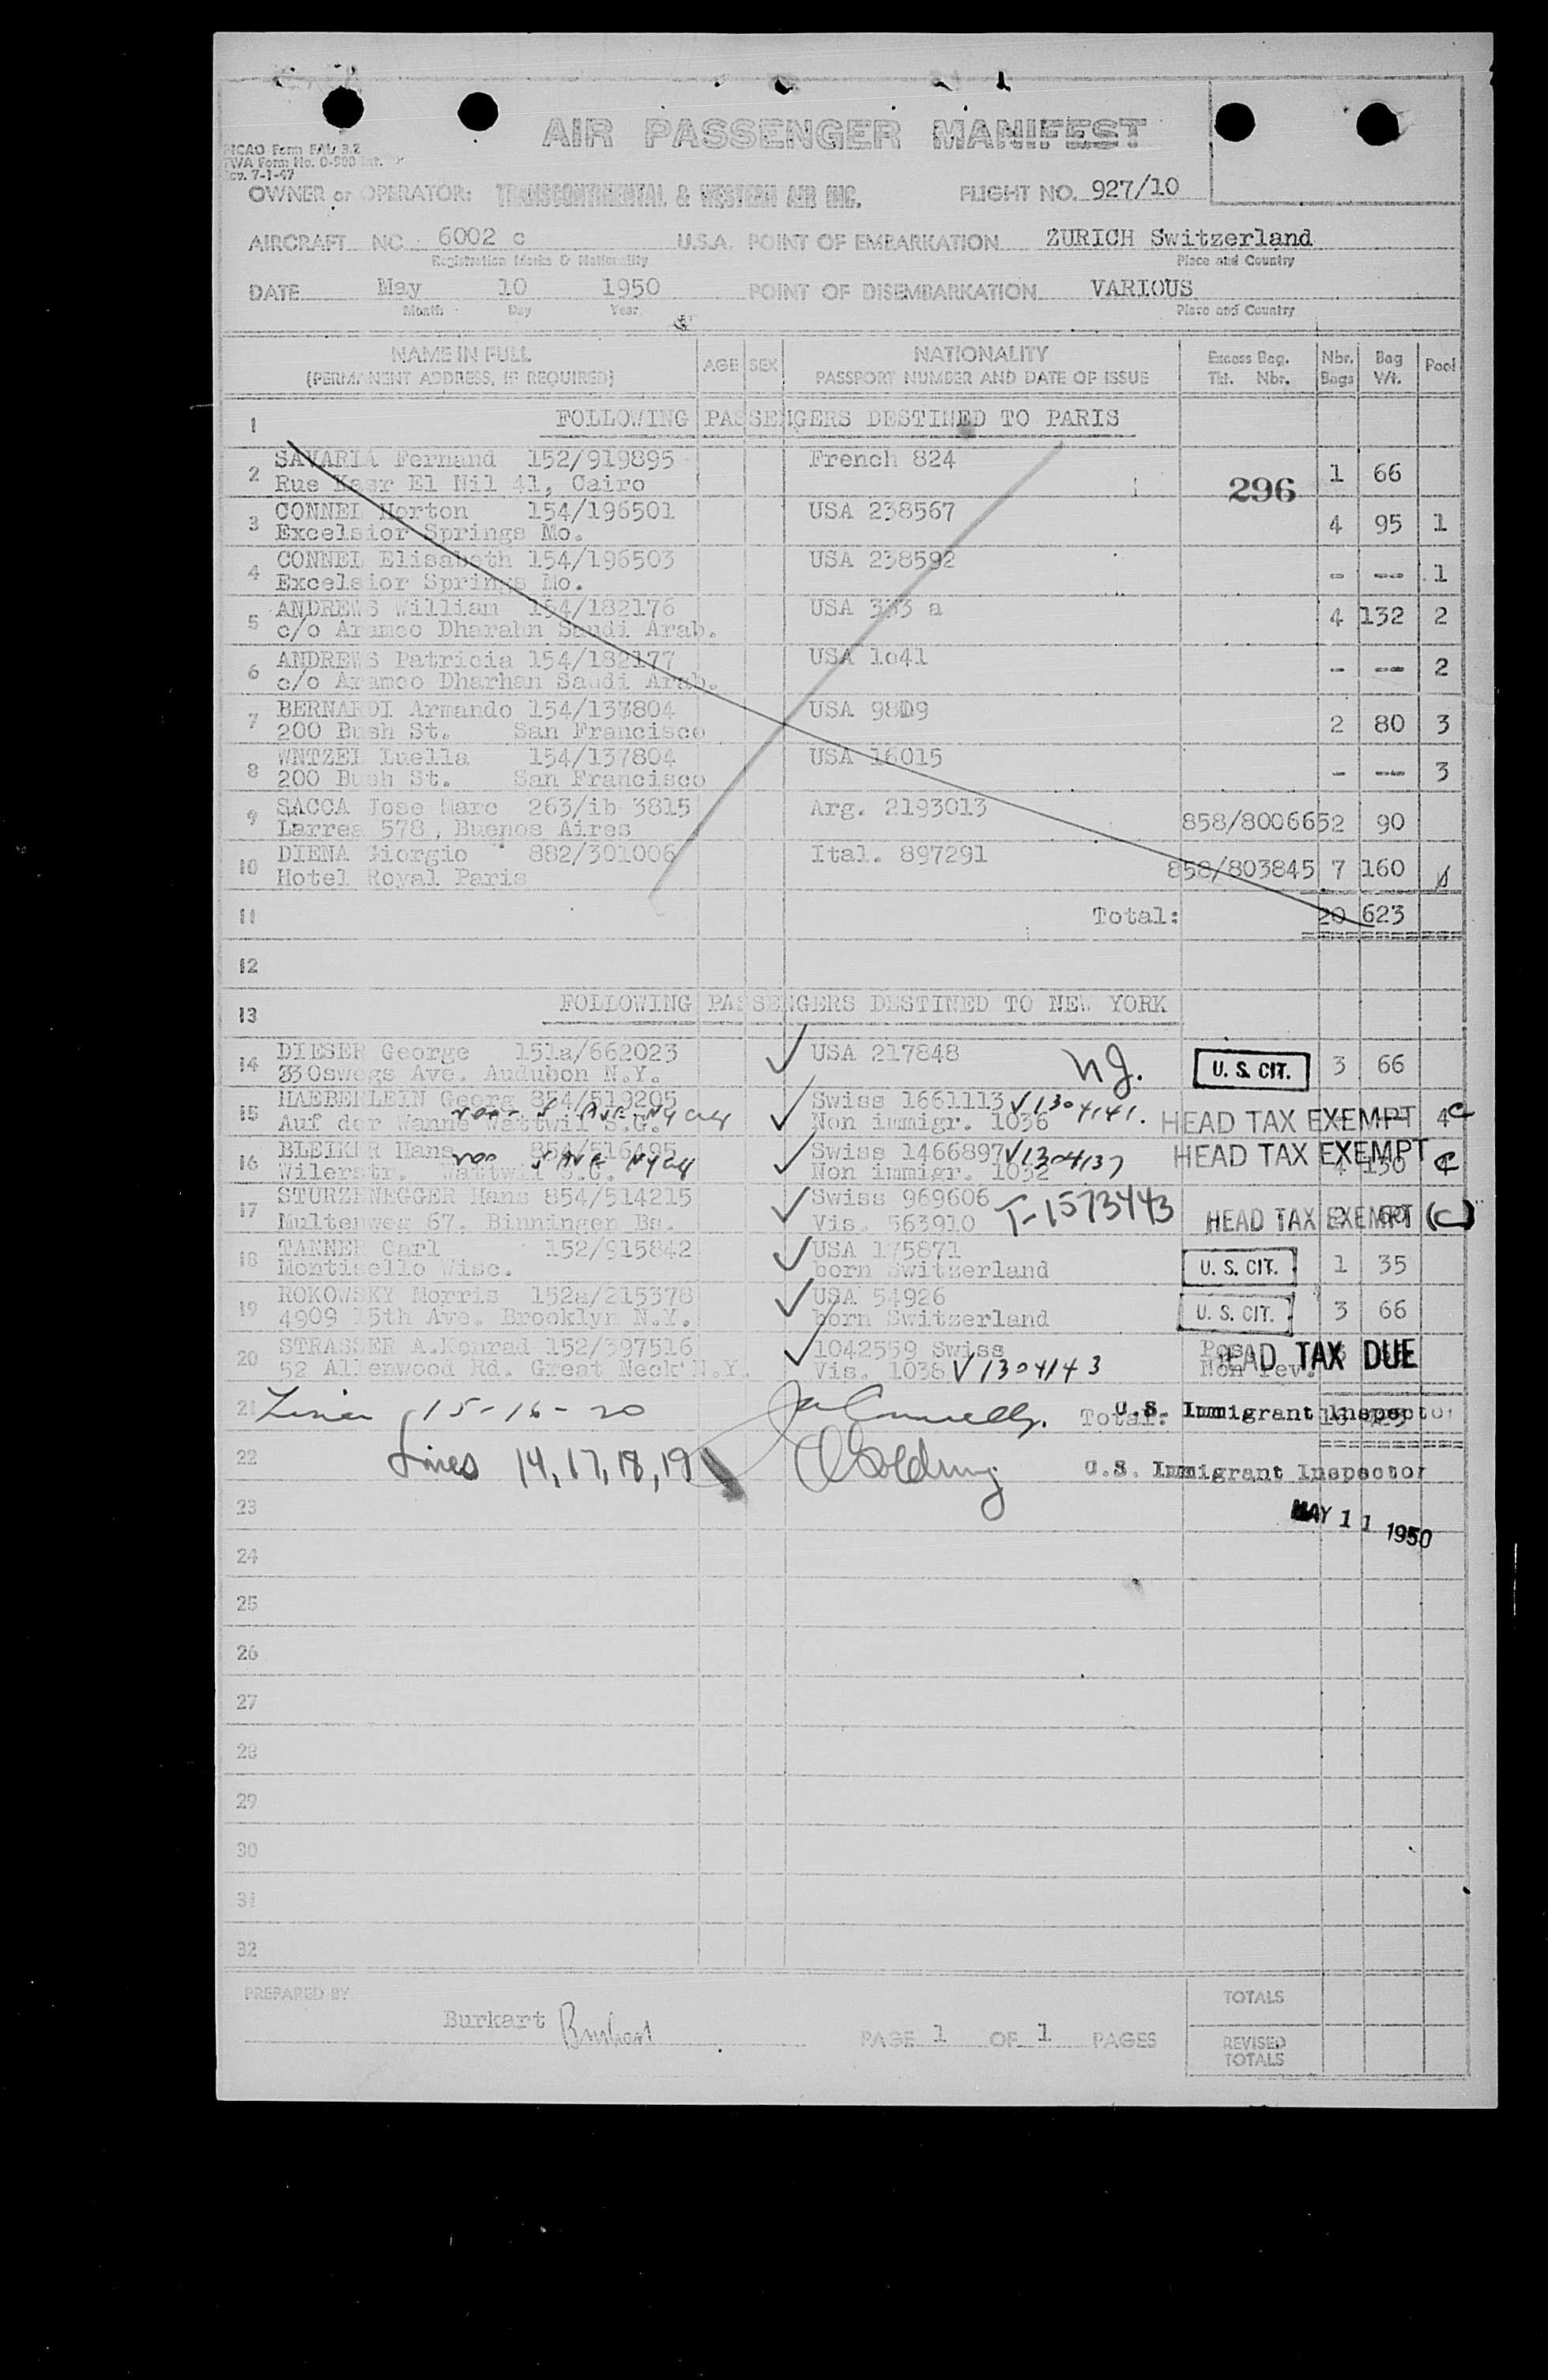 AIR PASSENGER MANIFEST
ICAO Form FAL 3.2
TWA Form No. O-900 Int.
Rev. 7-1-47
OWNER or OPERATOR: TRANSCONTINENTAL & WESTERN AIR INC. FLIGHT NO. 927/10
AIRCRAFT NC 6002 c U.S.A. POINT OF EMBARKATION ZURICH Switzerland
Registration Marks & Nationality Place and Country
DATE May 10 1950 POINT OF DISEMBARKATION VARIOUS
Month Day Year Place and Country
NAME IN FULL AGE SEX NATIONALITY Excess Bag. Nbr. Bag Pool
(PERMANENT ADDRESS, IF REQUIRED) PASSPORT NUMBER AND DATE OF ISSUE Tkt. Nbr. Bags Wt.
1 FOLLOWING PASSENGERS DESTINED TO PARIS
2 SAVARIA Fernand 152/919895 French 824 1 66
Rue Kasr El Nil 41, Cairo 296
3 CONNEL Morton 154/196501 USA 238567 4 95 1
Excelsior Springs Mo.
4 CONNEL Elisabeth 154/196503 USA 238592 - --- 1
Excelsior Springs Mo.
5 ANDREWS Willian 154/182176 USA 333 a 4 132 2
c/o Aramco Dharahn Saudi Arab.
6 ANDREWS Patricia 154/182177 USA 1641 - --- 2
c/o Aramco Dharhan Saudi Arab.
7 BERNARDI Armando 154/137804 USA 98D9 2 80 3
200 Bush St. San Francisco
8 WNTZEL Luella 154/137804 USA 16015 - --- 3
200 Bush St. San Francisco
9 SACCA Jose Marc 263/ib 3815 Arg. 2193013 858/800665 2 90
Larrea 578, Buenos Aires
10 DIENA Giorgio 882/301006 Ital. 897291 858/803845 7 160
Hotel Royal Paris
11 Total: 20 623
12
13 FOLLOWING PASSENGERS DESTINED TO NEW YORK
14 DIESER George 151a/662023 USA 217848 NJ. U. S. CIT. 3 66
33 Oswegs Ave. Audubon N.Y.
15 HAEBERLEIN Georg 854/519205 Swiss 1661113 V1304141. HEAD TAX EXEMPT 4 C
Auf der Wanne Wattwil S.G. Non immigr. 1036
16 BLEIKER Hans 854/516495 Swiss 1466897 V1304137 HEAD TAX EXEMPT 4 130 4 C
Wilerstr. Wattwil S.G. Non immigr. 1032
17 STURZENEGGER Hans 854/514215 Swiss 969606 T-1573443 HEAD TAX EXEMPT (C)
Multenweg 67, Binningen Bs. Vis. 563910
18 TANNER Carl 152/915842 USA 175871 U. S. CIT. 1 35
Monticello Wisc. born Switzerland
19 ROKOWSKY Morris 152a/215378 USA 54926 U. S. CIT. 3 66
4909 15th Ave. Brooklyn N.Y. born Switzerland
20 STRASSER A.Konrad 152/397516 1042559 Swiss HEAD TAX DUE
52 Allenwood Rd. Great Neck N.Y. Vis. 1038 V1304143 Non rev.
21 Lines 15-16-20 Total: U.S. Immigrant Inspector
22 Lines 14, 17, 18, 19 U.S. Immigrant Inspector
23 MAY 11 1950
24
25
26
27
28
29
30
31
32
PREPARED BY TOTALS
Burkart Burkart PAGE 1 OF 1 PAGES REVISED
TOTALS